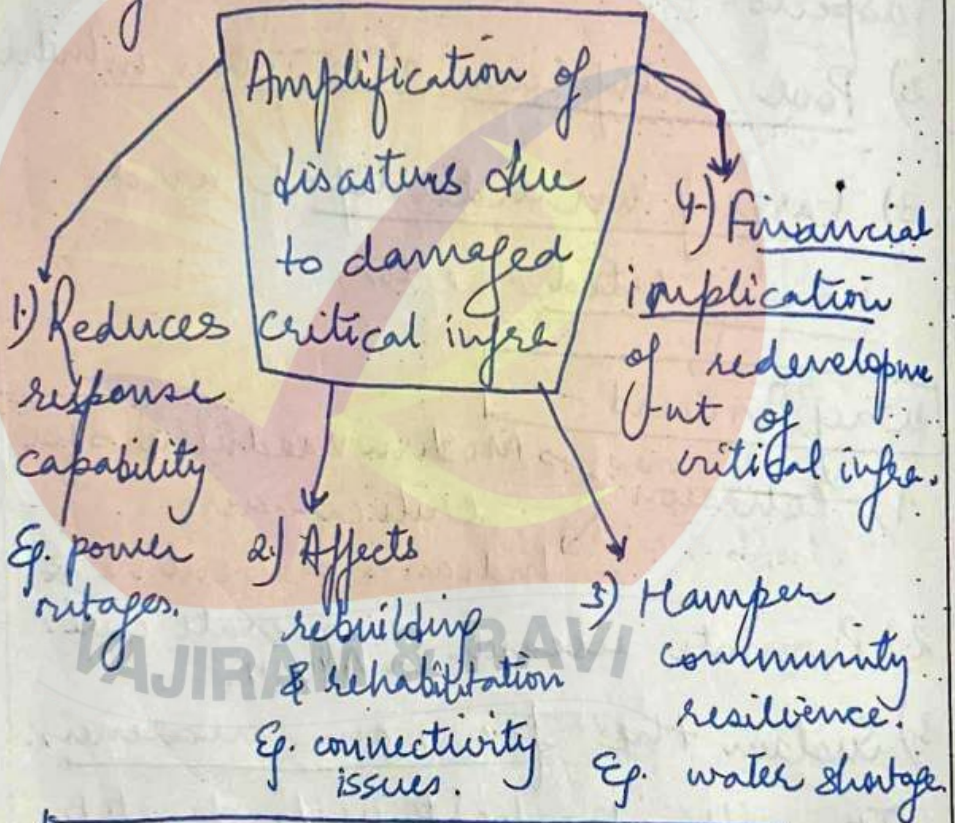 Amplification of
disasters due
to damaged
critical infra
1.) Reduces
response
capability
Eg. power
outages.
2.) Affects
rebuilding
& rehabilitation
Eg. connectivity
issues.
3) Hamper
community
resilience.
Eg. water shortage.
4.) Financial
implication
of redevelopme
-nt of
critical infra.
VAJIRAM & RAVI